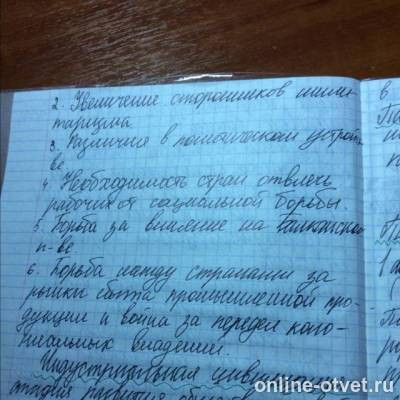 2. Увеличение сторонников мили-
таризма.
3. Различия в политическом устройст-
ве
4. Необходимость стран отвлечь
рабочих от социальной борьбы.
5. Борьба за влияние на Балканском
п-ве
6. Борьба между странами за
рынки сбыта промышленной про-
дукции и война за передел коло-
ниальных владений.
Индустриальная цивилизация
стадия развития общества
online-otvet.ru